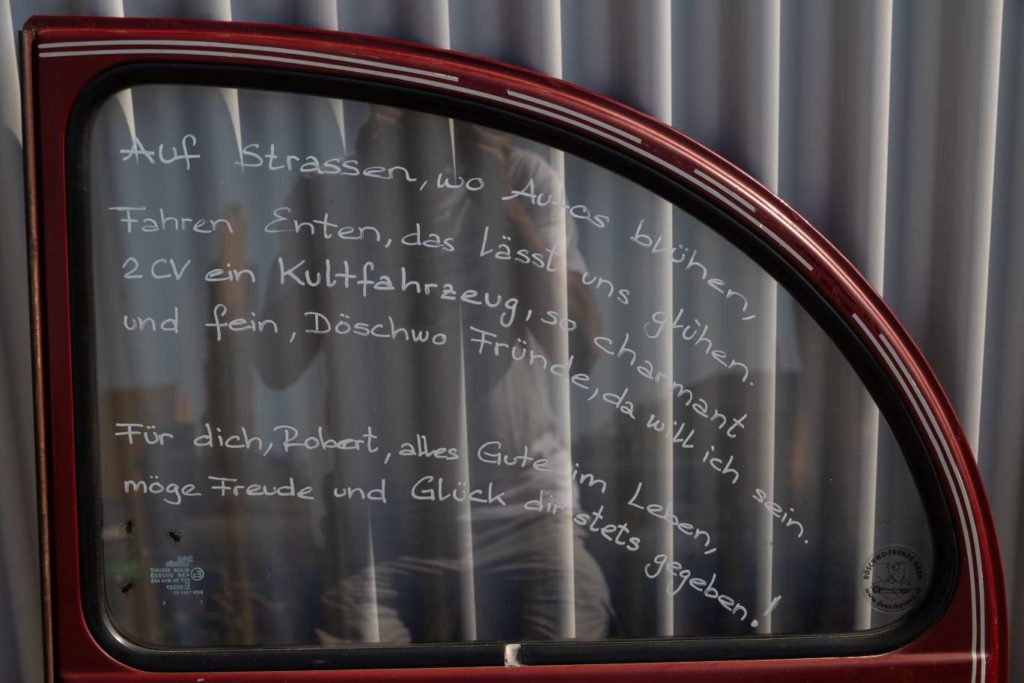 Auf Strassen, wo Autos blühen,
Fahren Enten, das lässt uns glühen.
2CV ein Kultfahrzeug, so charmant
und fein, Döschwo Fründe, da will ich sein.
Für dich, Robert, alles Gute im Leben,
möge Freude und Glück dir stets gegeben!
DÖSCHWO-FRÜNDE